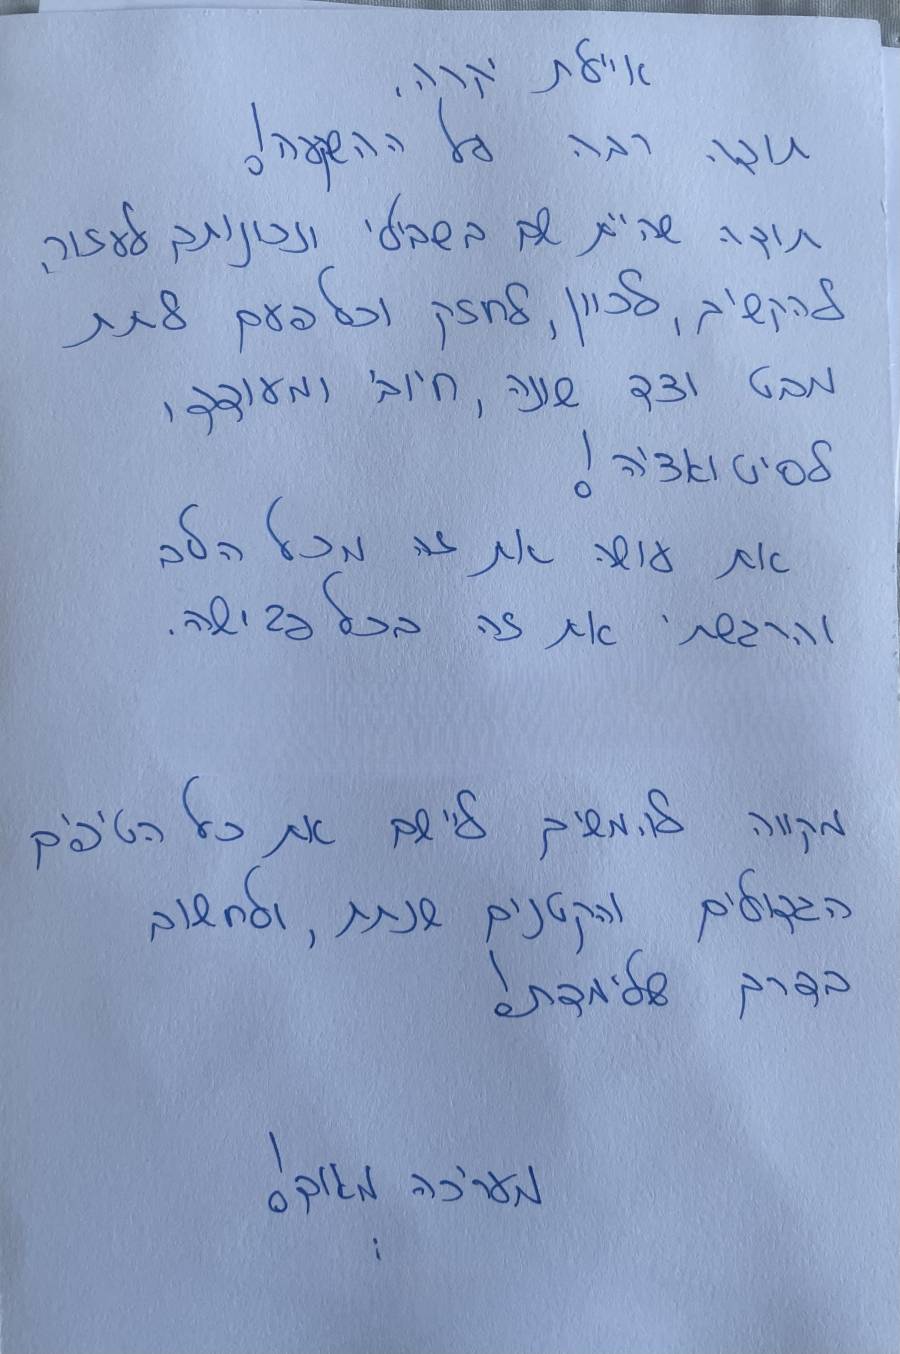 איילת יקרה,
תודה רבה על ההשקעה!
תודה שהיית שם בשבילי ונכונותך לעזור,
להקשיב, לכוון, לחזק וכל פעם לתת
מבט וצד שונה, חיובי ומעודד,
לסיטואציה!
את עושה את זה מכל הלב
והרגשתי את זה בכל פגישה.
מקווה להמשיך ליישם את כל הטיפים
הגדולים והקטנים שנתת, ולחשוב
בדרך שלימדת!
מעריכה מאוד!